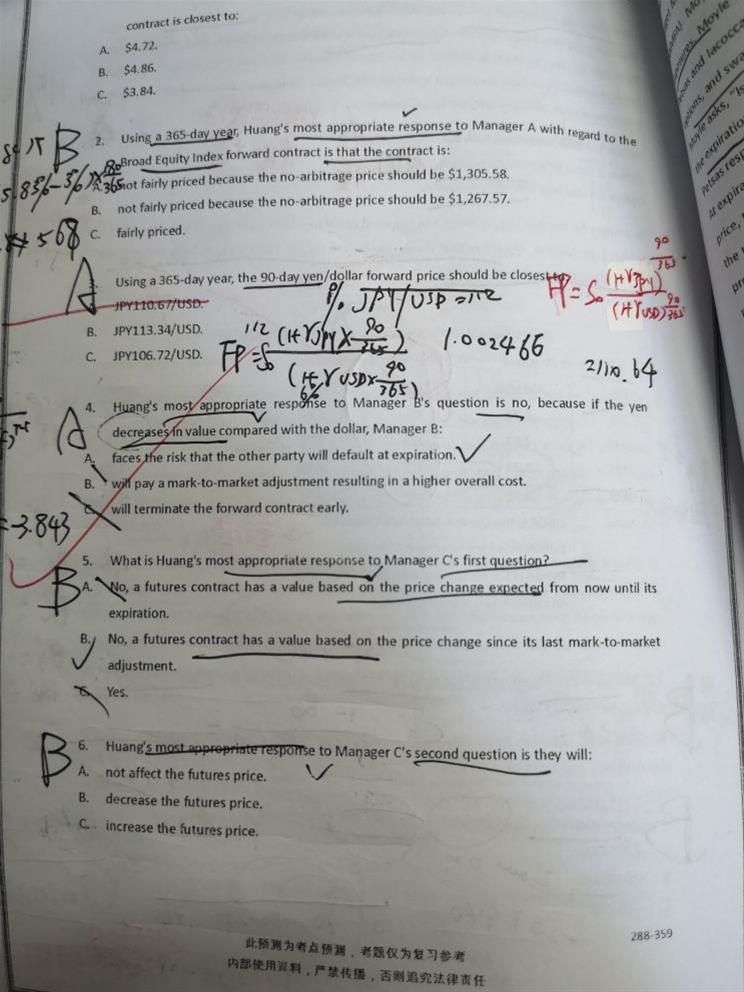 contract is closest to:
A. $4.72.
B. $4.86.
C. $3.84.
B
2. Using a 365-day year, Huang's most appropriate response to Manager A with regard to the
Broad Equity Index forward contract is that the contract is:
A. not fairly priced because the no-arbitrage price should be $1,305.58.
B. not fairly priced because the no-arbitrage price should be $1,267.57.
C. fairly priced.
A
Using a 365-day year, the 90-day yen/dollar forward price should be closest
JPY110.67/USD.
B. JPY113.34/USD.
C. JPY106.72/USD.
JPY/USD = 112
1.002466
110.64
A
4. Huang's most appropriate response to Manager B's question is no, because if the yen
decreases in value compared with the dollar, Manager B:
A. faces the risk that the other party will default at expiration.
B. will pay a mark-to-market adjustment resulting in a higher overall cost.
C. will terminate the forward contract early.
=-3.843
B
5. What is Huang's most appropriate response to Manager C's first question?
A. No, a futures contract has a value based on the price change expected from now until its
expiration.
B. No, a futures contract has a value based on the price change since its last mark-to-market
adjustment.
C. Yes.
B
6. Huang's most appropriate response to Manager C's second question is they will:
A. not affect the futures price.
B. decrease the futures price.
C. increase the futures price.
288-359
此预测为考点预测，考题仅为复习参考
内部使用资料，严禁传播，否则追究法律责任